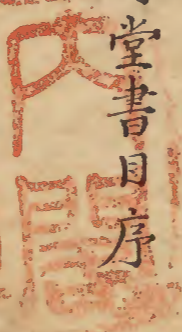 堂書目序